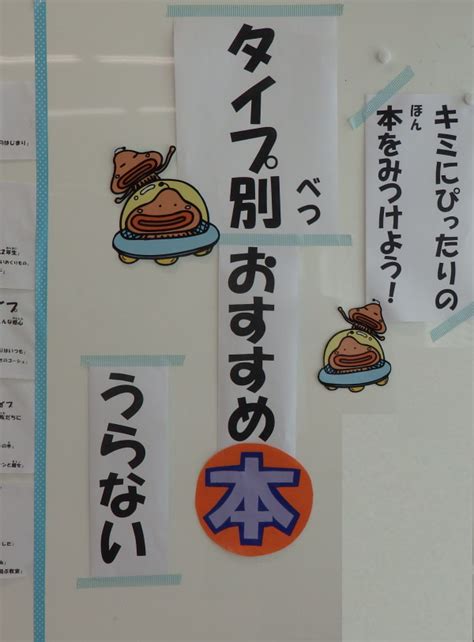 キミにぴったりの
本をみつけよう!
ほん
タイプ別
べつ
おすすめ
本
うらない